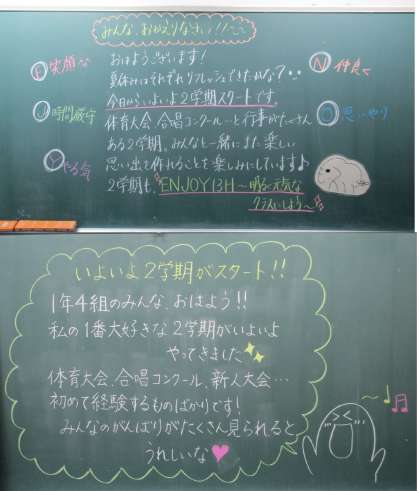 みんな、おかえりなさい!!
おはようございます!
夏休みはそれぞれリフレッシュできたかな?
今日からいよいよ2学期スタートです。
体育大会、合唱コンクール…と行事がたくさん
ある2学期。みんなと一緒にまた楽しい
思い出を作れることを楽しみにしています♪
2学期も、"ENJOY 13H〜明るく元気な
クラスにしよう〜"
E 笑顔な
N 仲良く
J 時間厳守
O 思いやり
Y やる気
いよいよ2学期がスタート!!
1年4組のみんな、おはよう!!
私の1番大好きな2学期がいよいよ
やってきました
体育大会、合唱コンクール、新人大会…
初めて経験するものばかりです!
みんなのがんばりがたくさん見られると
うれしいな♥